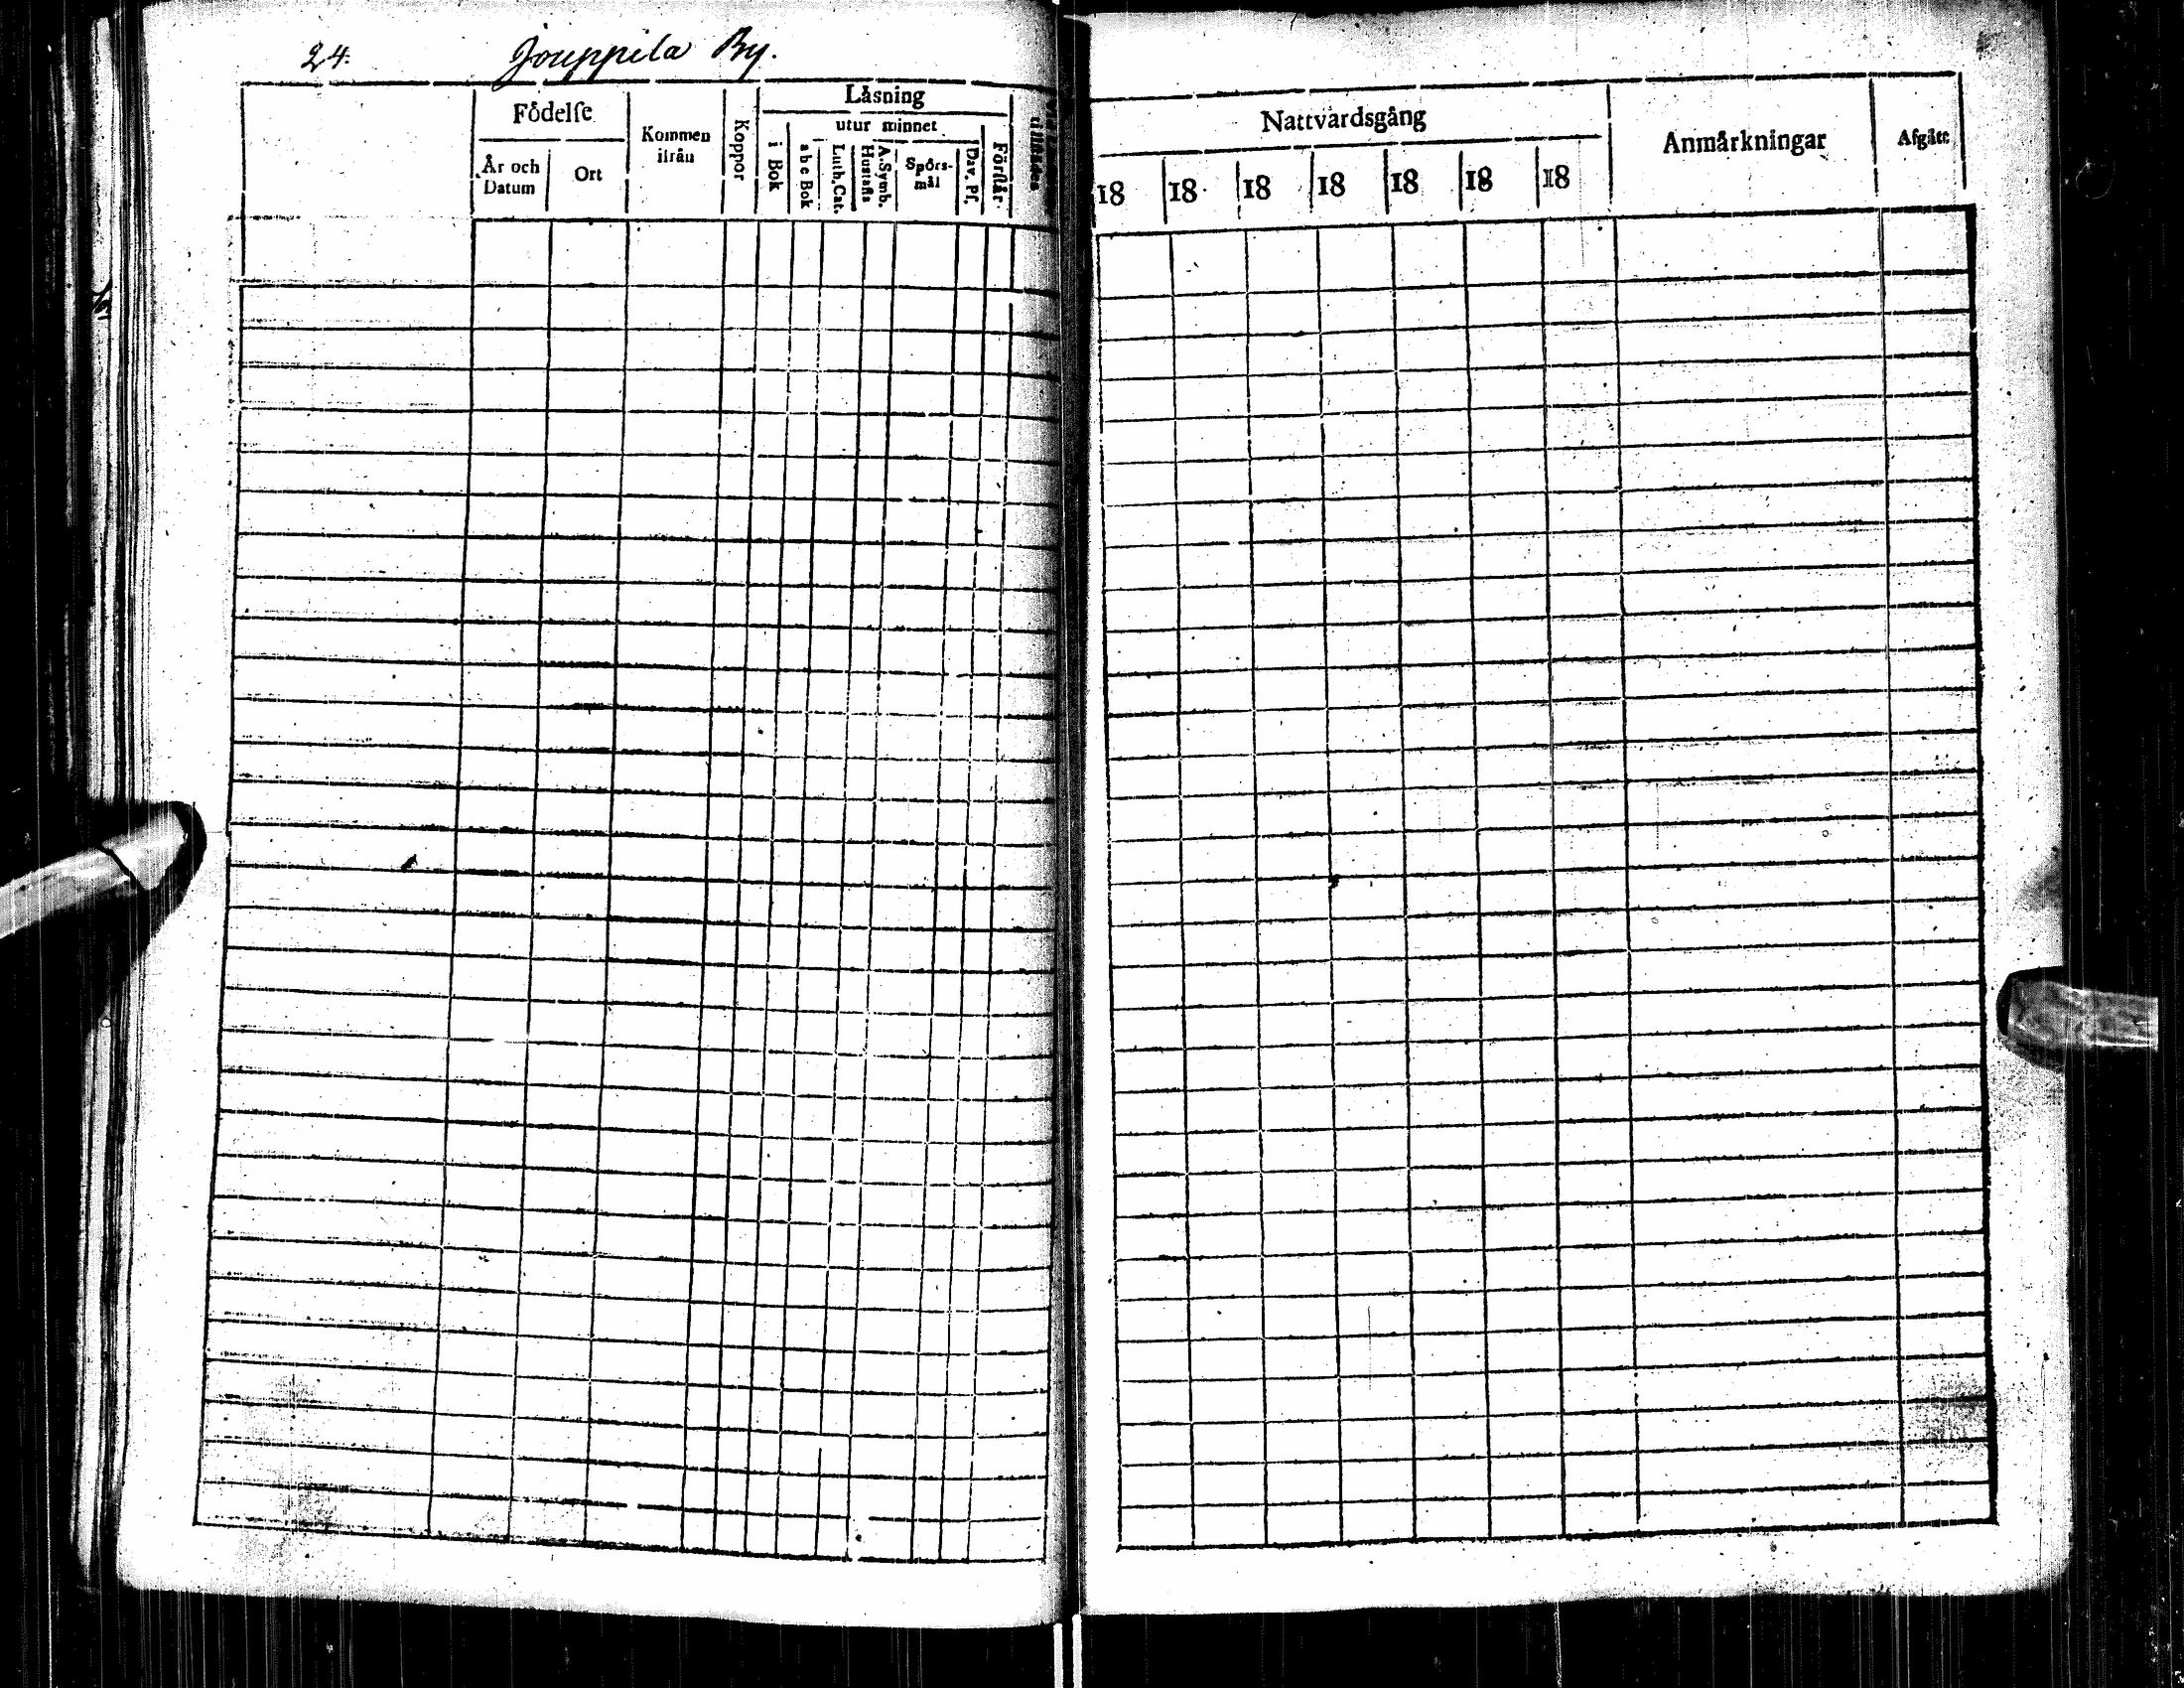 24. Jouppila By.
Födelse
År och Datum
Ort
Kommen ifrån
Koppor
Läsning
utur minnet
i Bok
abc Bok
Luth. Cat.
Hustafl.
A. Symb.
Spörs-
mål
Dav. Ps.
Förstår
Nattvardsgång
18 18 18 18 18 18 18
Anmärkningar
Afgått